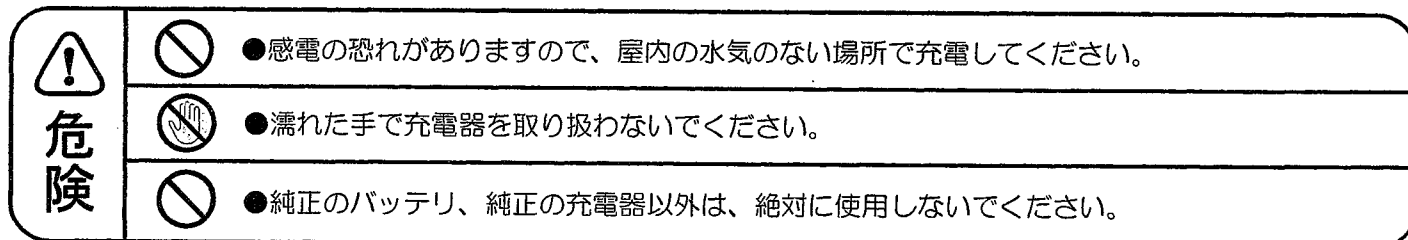 危険
●感電の恐れがありますので、屋内の水気のない場所で充電してください。
●濡れた手で充電器を取り扱わないでください。
●純正のバッテリ、純正の充電器以外は、絶対に使用しないでください。